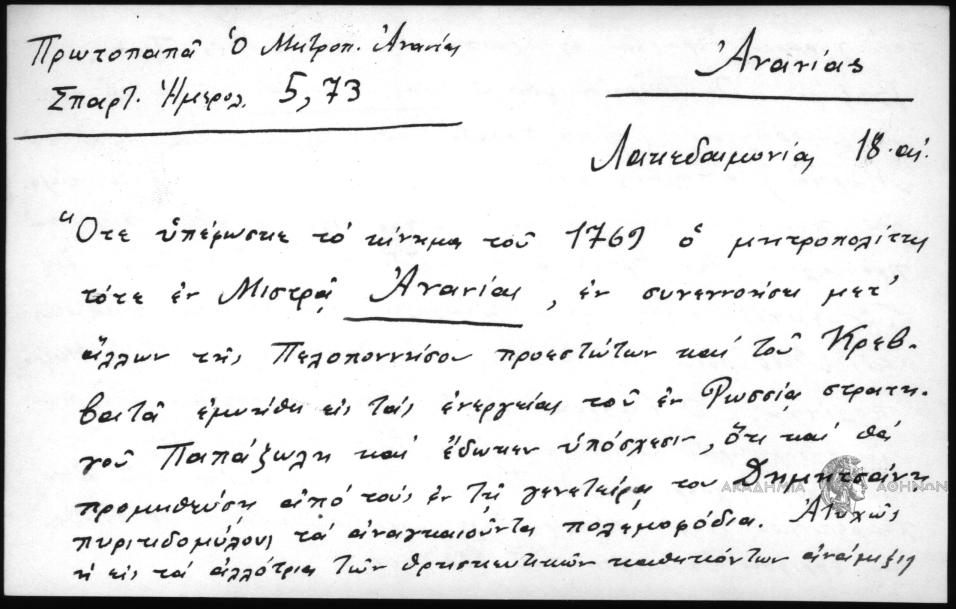 Πρωτοπαπᾶ Ὁ Μητροπ. Ἀνανίας
Σπαρτ. Ἡμερολ. 5,73
Ἀνανίας
Λακεδαιμονίας 18. αἰ.
"Ὅτε ὑπέφωσκε τό κίνημα τοῦ 1769 ὁ μητροπολίτης
τότε ἐν Μιστρᾷ Ἀνανίας, ἐν συνεννοήσει μετ'
ἄλλων τῆς Πελοποννήσου προεστώτων καί τοῦ Κρεβ-
βατᾶ ἐμυήθη εἰς τάς ἐνεργείας τοῦ ἐν Ρωσσίᾳ στρατη-
γοῦ Παπάζωλη καί ἔδωκεν ὑπόσχεσιν, ὅτι καί θά
προμηθεύσῃ ἀπό τούς ἐν τῇ γενετείρᾳ του Δημητσάνῃ
πυριτιδομύλους τά ἀναγκαιοῦντα πολεμοφόδια. Ἀτυχῶς
ἡ εἰς τά ἀλλότρια τῶν θρησκευτικῶν καθηκόντων ἀνάμειξις
ΑΚΑΔΗΜΙΑ ΑΘΗΝΩΝ